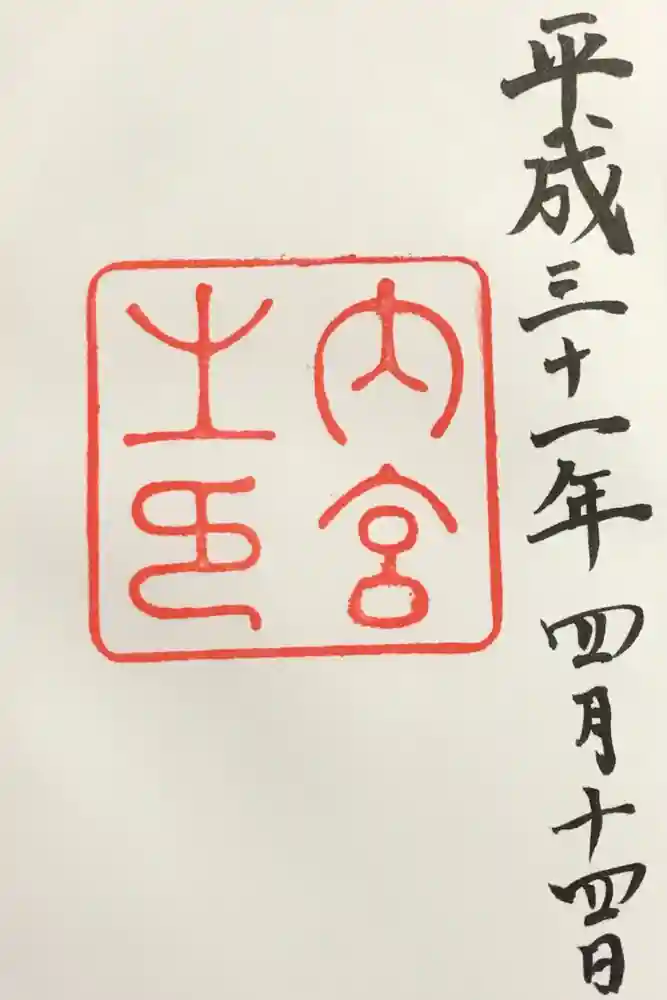 平成三十一年四月十四日
内宮
之印